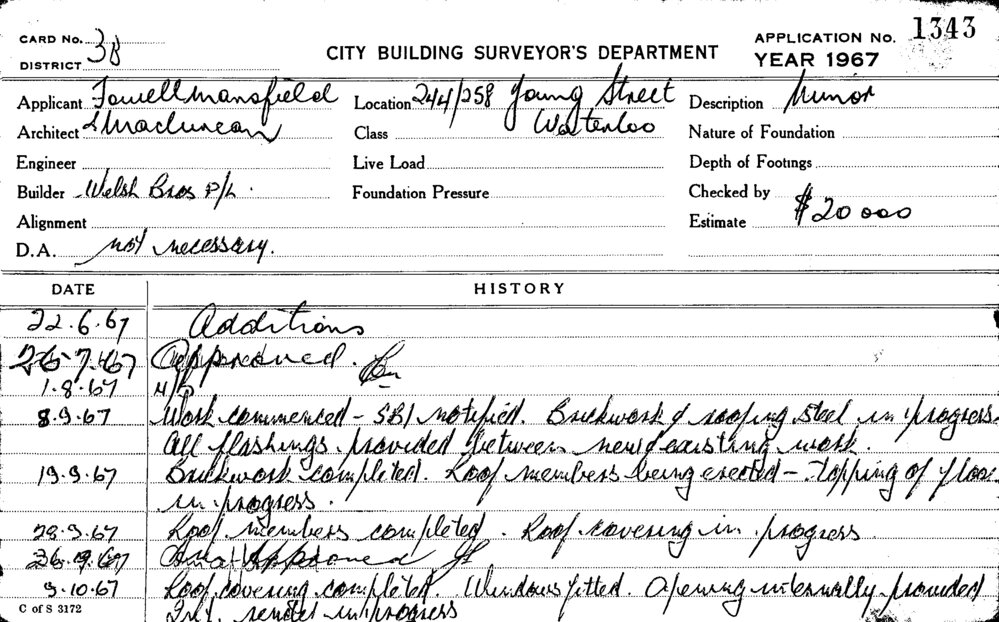 CARD No. 3B
DISTRICT
CITY BUILDING SURVEYOR'S DEPARTMENT
APPLICATION No. 1343
YEAR 1967
Applicant Fowell Mansfield Location 244/258 Young Street Description Minor
Architect & Maclurcan Class Waterloo Nature of Foundation
Engineer Live Load Depth of Footings
Builder Welsh Bros P/L. Foundation Pressure Checked by
Alignment Estimate $20 000
D.A. not necessary.
DATE HISTORY
22.6.67 Additions
26-7-67 Approved.
1.8.67 N/S
8.9.67 Work commenced - SBI notified. Brickwork & roofing steel in progress.
All flashings provided between new & existing work.
19.9.67 Brickwork completed. Roof members being erected - topping of floor
in progress.
28.9.67 Roof members completed. Roof covering in progress
Approved
9.10.67 Roof covering completed. Windows fitted. Opening internally provided
Int. render in progress
C of S 3172